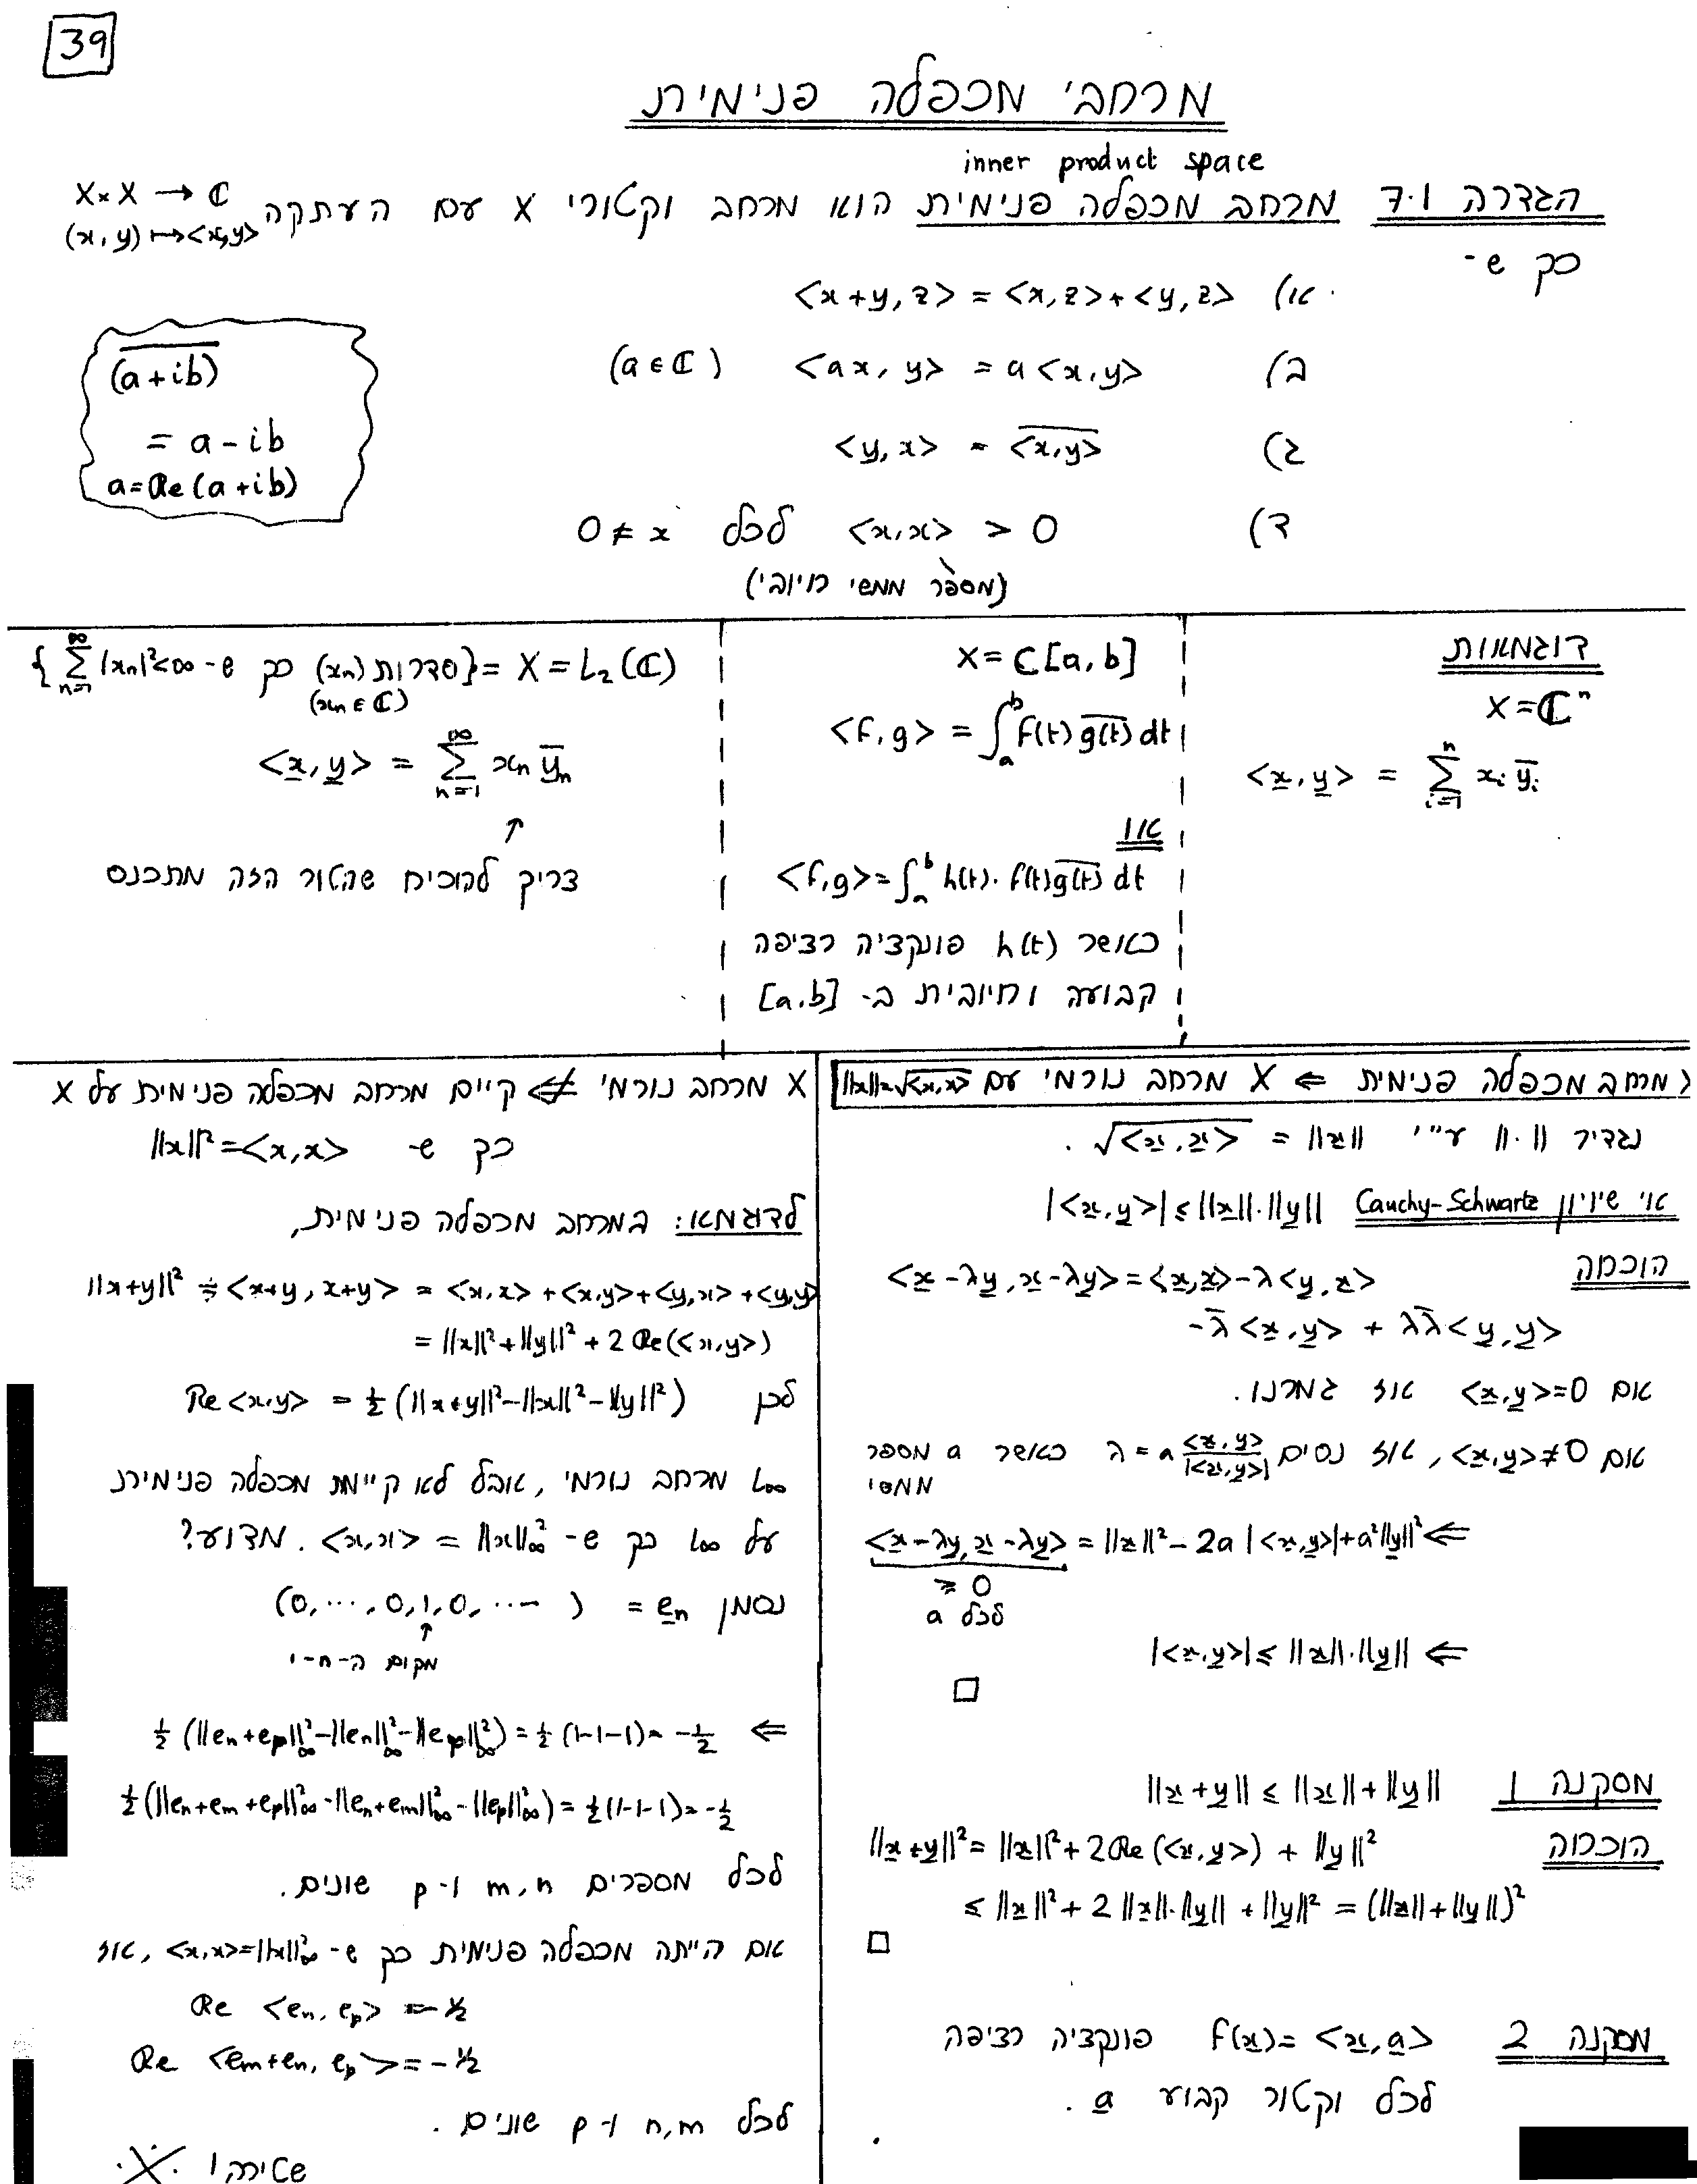 39
מרחבי מכפלה פנימית
inner product space
הגדרה 7.1 מרחב מכפלה פנימית הוא מרחב וקטורי X עם העתקה X×X → ℂ
(x,y) ↦ <x,y>
כך ש-
או) <x+y, z> = <x,z> + <y,z>
ב) <ax, y> = a<x,y> (a∈ℂ)
ג) <y,x> = \overline{<x,y>}
ד) <x,x> > 0 לכל x ≠ 0
(מספר ממשי חיובי)
\overline{(a+ib)}
= a-ib
a = Re(a+ib)
דוגמאות
X = ℂⁿ
<x,y> = \sum_{i=1}^{n} x_i \overline{y}_i
X = C[a,b]
<f,g> = \int_a^b f(t)\overline{g(t)} dt
או
<f,g> = \int_a^b h(t)·f(t)\overline{g(t)} dt
כאשר h(t) פונקציה רציפה
קבועה וחיובית ב- [a,b]
X = L₂(ℂ) = {סדרות (x_n) כך ש- \sum_{n=1}^{∞} |x_n|² < ∞
(x_n ∈ ℂ)
<x,y> = \sum_{n=1}^{∞} x_n \overline{y}_n
↑
צריך להוכיח שהטור הזה מתכנס
מרחב מכפלה פנימית ⇐ X מרחב נורמי עם ||x||=√<x,x>
נגדיר ||·|| ע"י ||x|| = √<x,x> .
אי שיויון Cauchy-Schwartz |<x,y>| ≤ ||x||·||y||
הוכחה <x-λy, x-λy> = <x,x> - λ<y,x>
-\overline{λ}<x,y> + λ\overline{λ}<y,y>
אם <x,y>=0 אז גמרנו.
אם <x,y>≠0, אז נסים λ = a \frac{<x,y>}{|<x,y>|} כאשר a מספר
ממשי
⇐ <x-λy, x-λy> = ||x||² - 2a|<x,y>| + a²||y||²
≥ 0
לכל a
⇐ |<x,y>| ≤ ||x||·||y||
□
מסקנה 1 ||x+y|| ≤ ||x|| + ||y||
הוכחה ||x+y||² = ||x||² + 2Re(<x,y>) + ||y||²
≤ ||x||² + 2||x||·||y|| + ||y||² = (||x||+||y||)²
□
מסקנה 2 f(x) = <x,a> פונקציה רציפה
לכל וקטור קבוע a .
X מרחב נורמי ⇍ קיים מרחב מכפלה פנימית על X
כך ש- ||x||² = <x,x>
לדוגמא: במרחב מכפלה פנימית,
||x+y||² = <x+y, x+y> = <x,x> + <x,y> + <y,x> + <y,y>
= ||x||² + ||y||² + 2Re(<x,y>)
לכן Re<x,y> = ½(||x+y||² - ||x||² - ||y||²)
L∞ מרחב נורמי, אבל לא קיימת מכפלה פנימית
על L∞ כך ש- <x,x> = ||x||²_∞ . מדוע?
נסמן e_n = (0,⋯,0,1,0,⋯ )
↑
מקום ה-n-י
⇐ ½(||e_n+e_p||²_∞ - ||e_n||²_∞ - ||e_p||²_∞) = ½(1-1-1) = -½
½(||e_n+e_m+e_p||²_∞ - ||e_n+e_m||²_∞ - ||e_p||²_∞) = ½(1-1-1) = -½
לכל מספרים m,n ו-p שונים.
אם הייתה מכפלה פנימית כך ש- <x,x>=||x||²_∞, אז
Re <e_n, e_p> = -½
Re <e_m+e_n, e_p> = -½
לכל n,m ו-p שונים.